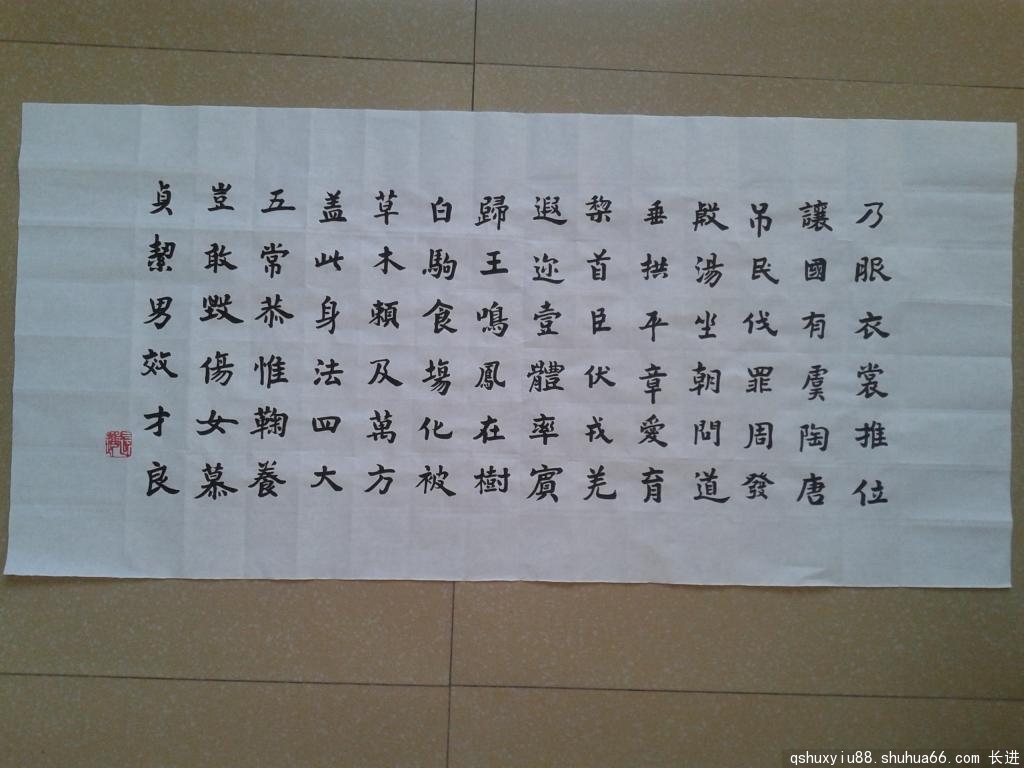 乃服衣裳推位
讓國有虞陶唐
吊民伐罪周發
殷湯坐朝問道
垂拱平章愛育
黎首臣伏戎羌
遐迩壹體率賓
歸王鳴鳳在樹
白駒食場化被
草木賴及萬方
盖此身法四大
五常恭惟鞠養
豈敢毀傷女慕
貞絜男效才良
qshuxyiu88.shuhua66.com 长进